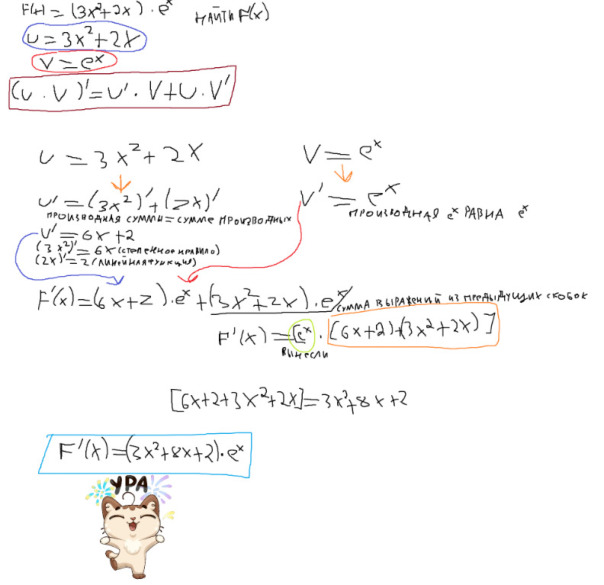 F(x) = (3x²+2x) · eˣ НАЙТИ F'(x)
U = 3x²+2x
V = eˣ
(U · V)' = U' · V + U · V'
U = 3x² + 2x V = eˣ
U' = (3x²)' + (2x)' V' = eˣ
ПРОИЗВОДНАЯ СУММЫ = СУММЕ ПРОИЗВОДНЫХ ПРОИЗВОДНАЯ eˣ РАВНА eˣ
U' = 6x + 2
(3x²)' = 6x (СТЕПЕННОЕ ПРАВИЛО)
(2x)' = 2 (ЛИНЕЙНАЯ ФУНКЦИЯ)
F'(x) = (6x+2) · eˣ + (3x²+2x) · eˣ
СУММА ВЫРАЖЕНИЙ ИЗ ПРЕДЫДУЩИХ СКОБОК
F'(x) = [eˣ · [6x+2)+(3x²+2x)]
ВЫНЕСЛИ
[6x+2+3x²+2x] = 3x²+8x+2
F'(x) = (3x²+8x+2) · eˣ
УРА